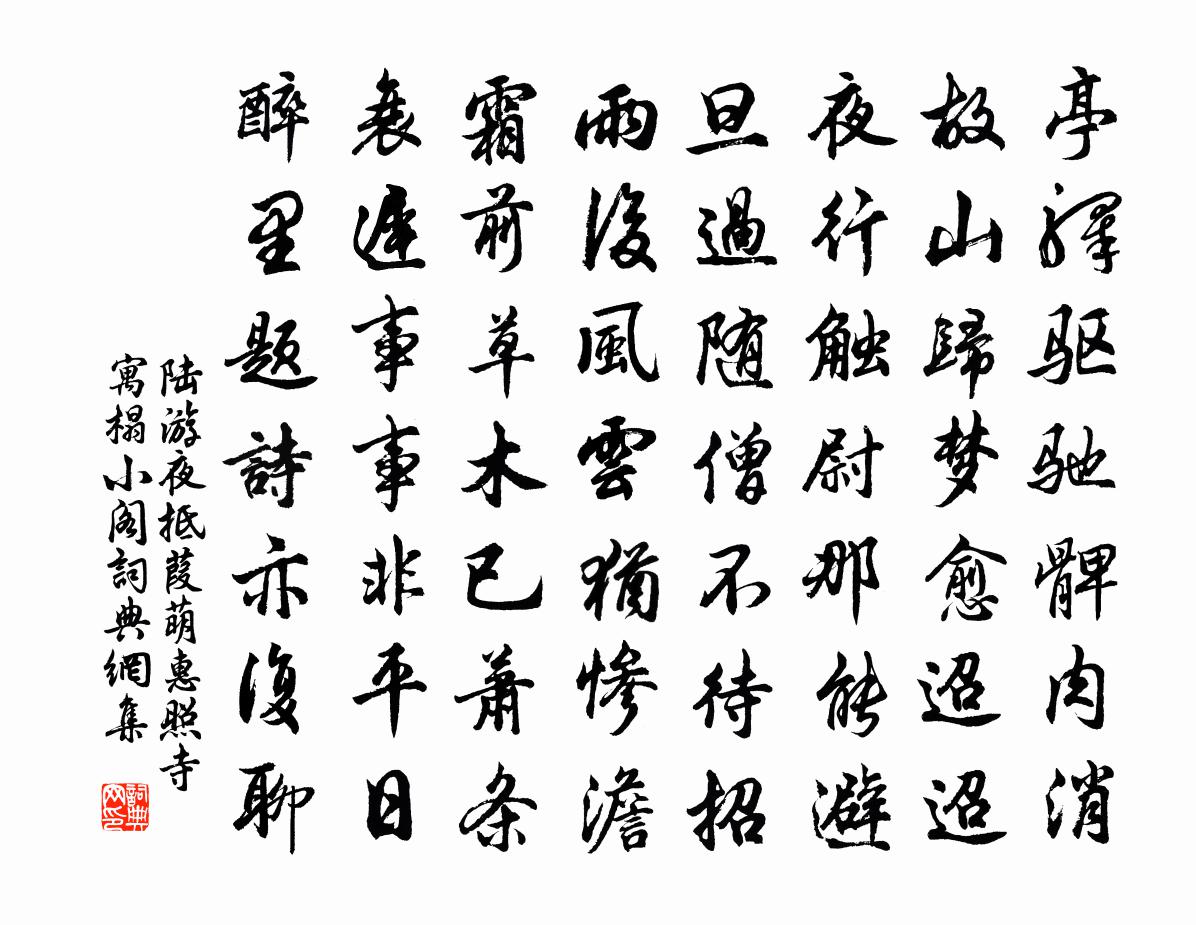 亭驿驱驰髀肉消
故山歸梦愈迢迢
夜行触尉那能避
旦過随僧不待招
雨後風雲猶惨澹
霜前草木已萧条
衰遲事事非平日
醉里题詩亦復聊
陆游夜抵葭萌惠照寺
寓榻小阁詞典網集
詞典网印